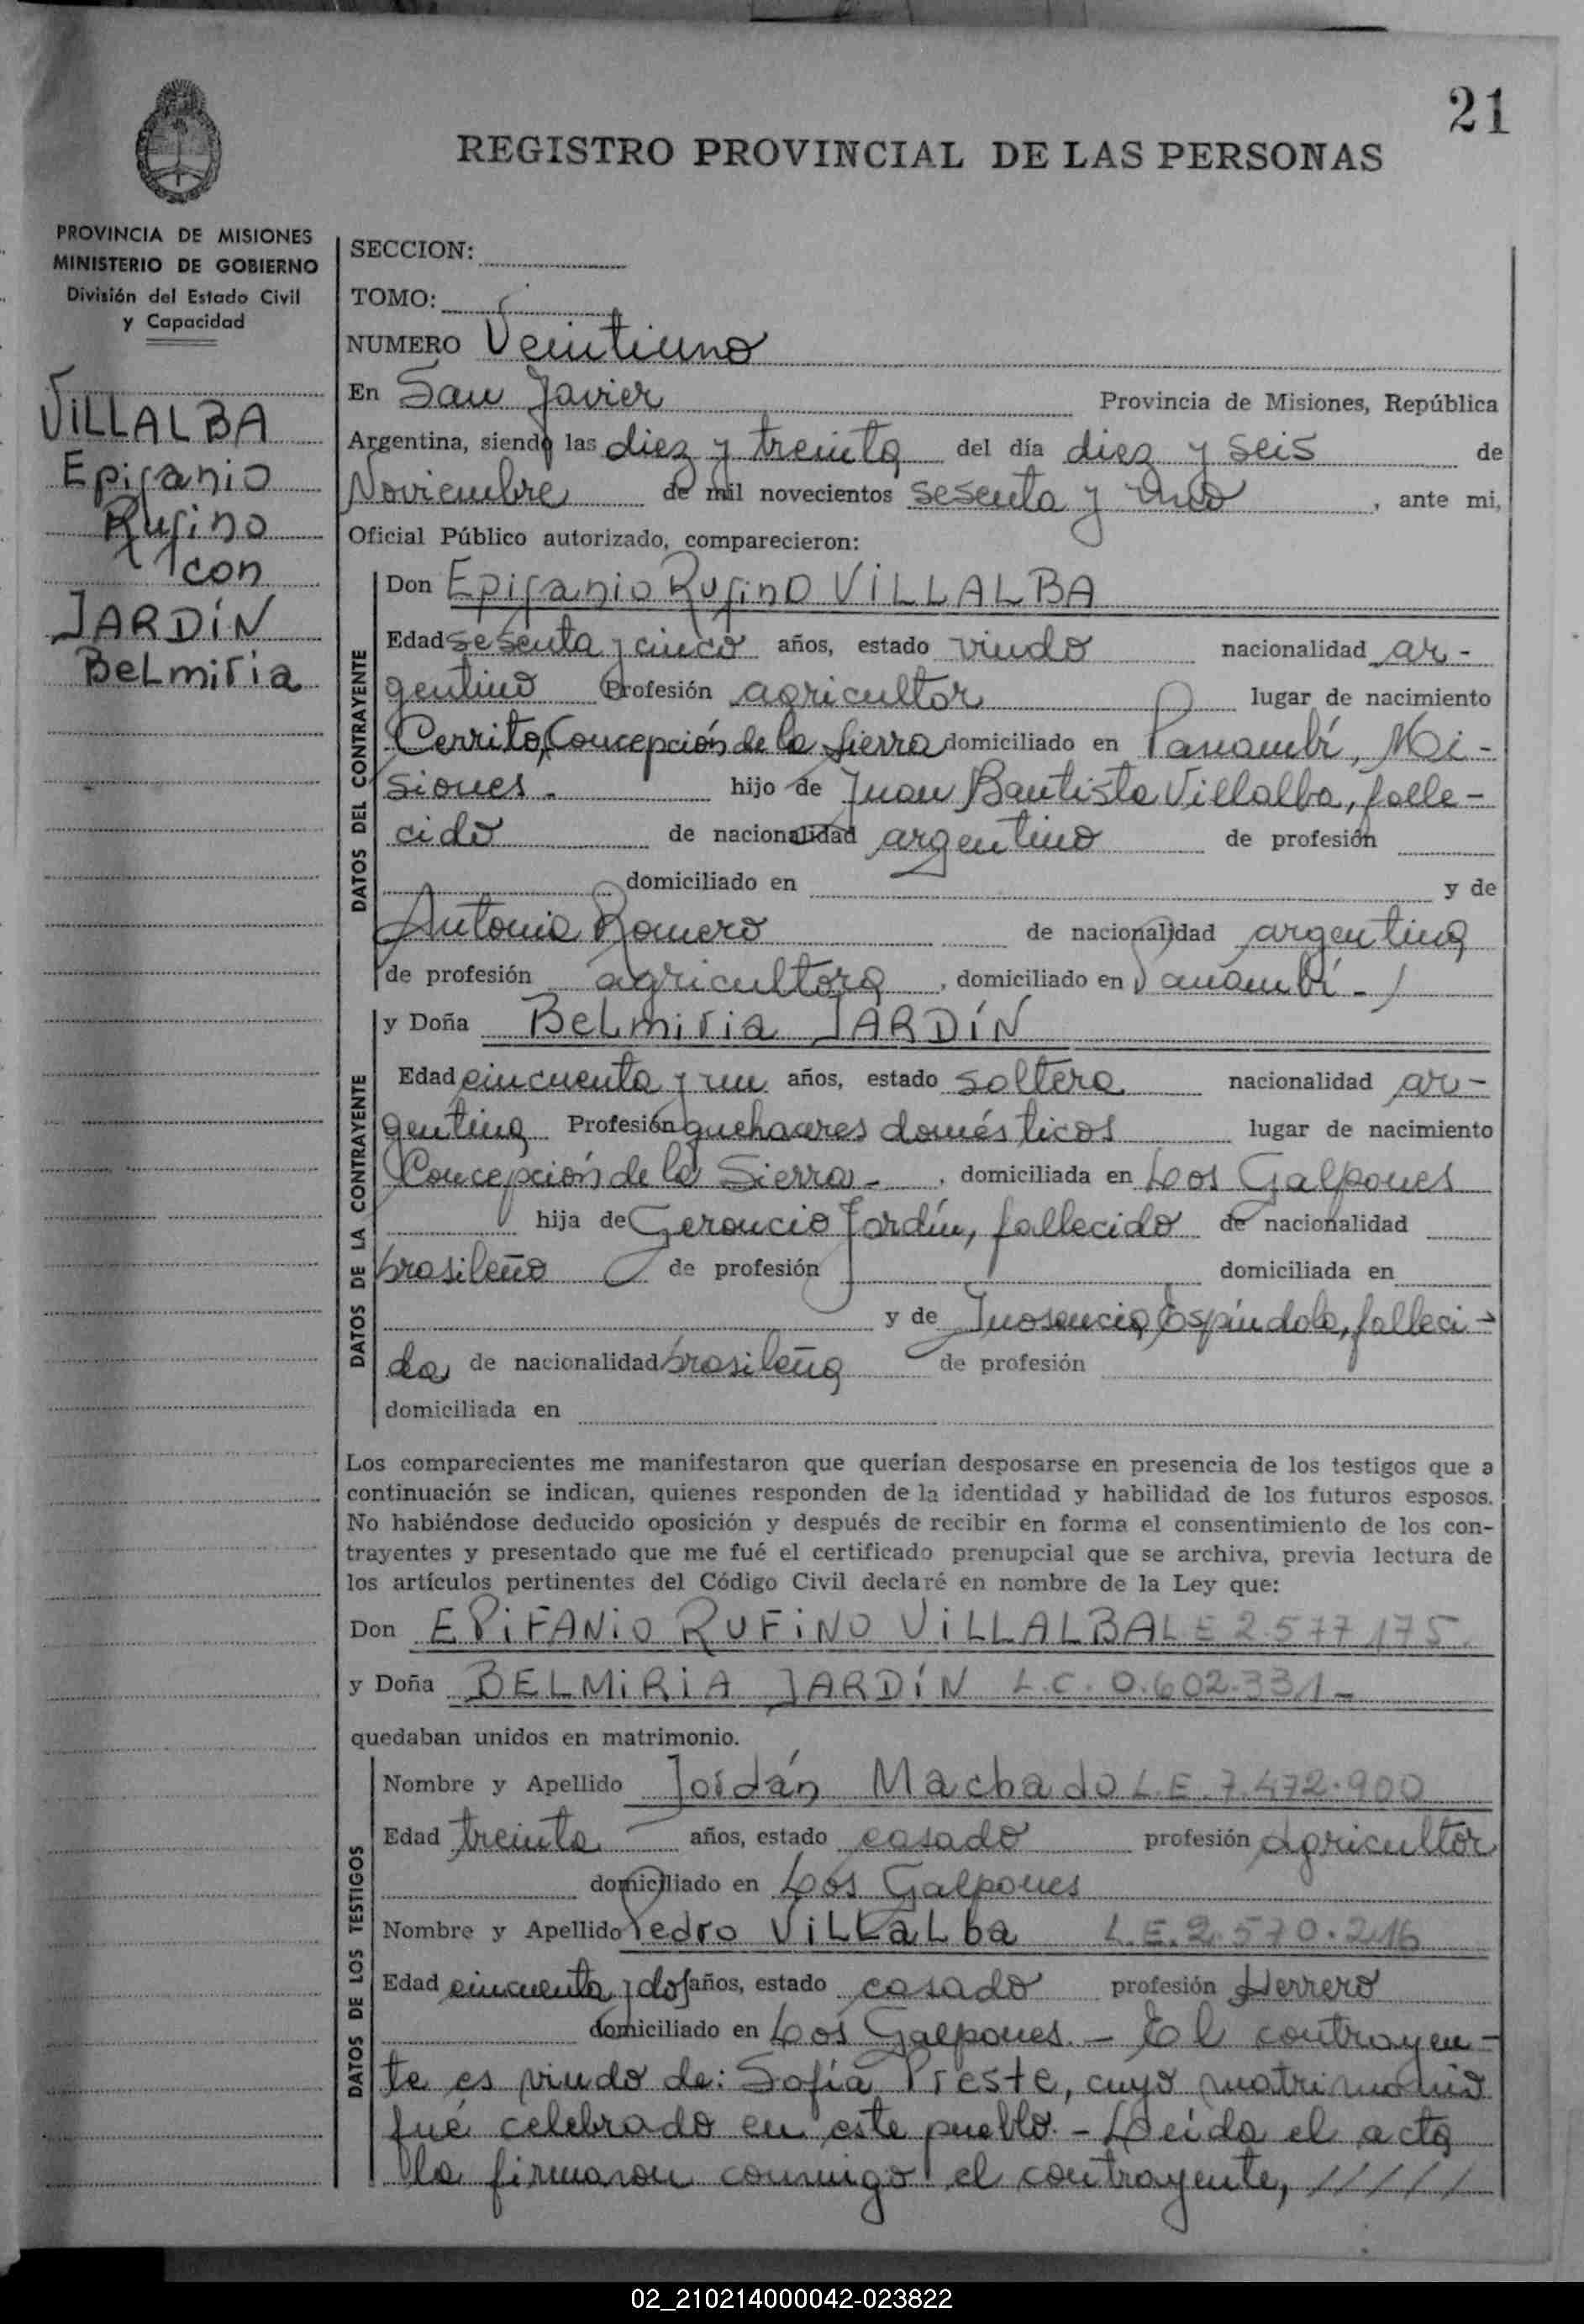 21
REGISTRO PROVINCIAL DE LAS PERSONAS
PROVINCIA DE MISIONES
MINISTERIO DE GOBIERNO
División del Estado Civil
y Capacidad
VILLALBA
Epifanio
Rufino
con
JARDÍN
Belmiria
SECCION:
TOMO:
NUMERO Veintiuno
En San Javier Provincia de Misiones, República
Argentina, siendo las diez y treinta del día diez y seis de
Noviembre de mil novecientos sesenta y uno, ante mi,
Oficial Público autorizado, comparecieron:
DATOS DEL CONTRAYENTE
Don Epifanio Rufino VILLALBA
Edad sesenta y cinco años, estado viudo nacionalidad ar-
gentino Profesión agricultor lugar de nacimiento
Cerrito, Concepción de la Sierra domiciliado en Panambí, Mi-
siones.- hijo de Juan Bautista Villalba, falle-
cido de nacionalidad argentino de profesión
domiciliado en y de
Antonia Romero de nacionalidad argentina
de profesión agricultora, domiciliado en Panambí.-
DATOS DE LA CONTRAYENTE
y Doña Belmiria JARDÍN
Edad cincuenta y un años, estado soltera nacionalidad ar-
gentina Profesión quehaceres domésticos lugar de nacimiento
Concepción de la Sierra.-, domiciliada en Los Galpones
hija de Geroncio Jardín, fallecido de nacionalidad
brasileño de profesión domiciliada en
y de Inosencia Espíndola, falleci-
da, de nacionalidad brasileña de profesión
domiciliada en
Los comparecientes me manifestaron que querían desposarse en presencia de los testigos que a
continuación se indican, quienes responden de la identidad y habilidad de los futuros esposos.
No habiéndose deducido oposición y después de recibir en forma el consentimiento de los con-
trayentes y presentado que me fué el certificado prenupcial que se archiva, previa lectura de
los artículos pertinentes del Código Civil declaré en nombre de la Ley que:
Don EPIFANIO RUFINO VILLALBA L E 2.577.175.
y Doña BELMIRIA JARDÍN L.C. 0.602.331-
quedaban unidos en matrimonio.
DATOS DE LOS TESTIGOS
Nombre y Apellido Jordán Machado L.E. 7.472.900
Edad treinta años, estado casado profesión agricultor
domiciliado en Los Galpones
Nombre y Apellido Pedro Villalba L.E. 2.570.216
Edad cincuenta y dos años, estado casado profesión Herrero
domiciliado en Los Galpones.- El contrayen-
te es viudo de: Sofía Preste, cuyo matrimonio
fué celebrado en este pueblo.- Leída el acta
la firmaron conmigo el contrayente, /////
02_210214000042-023822